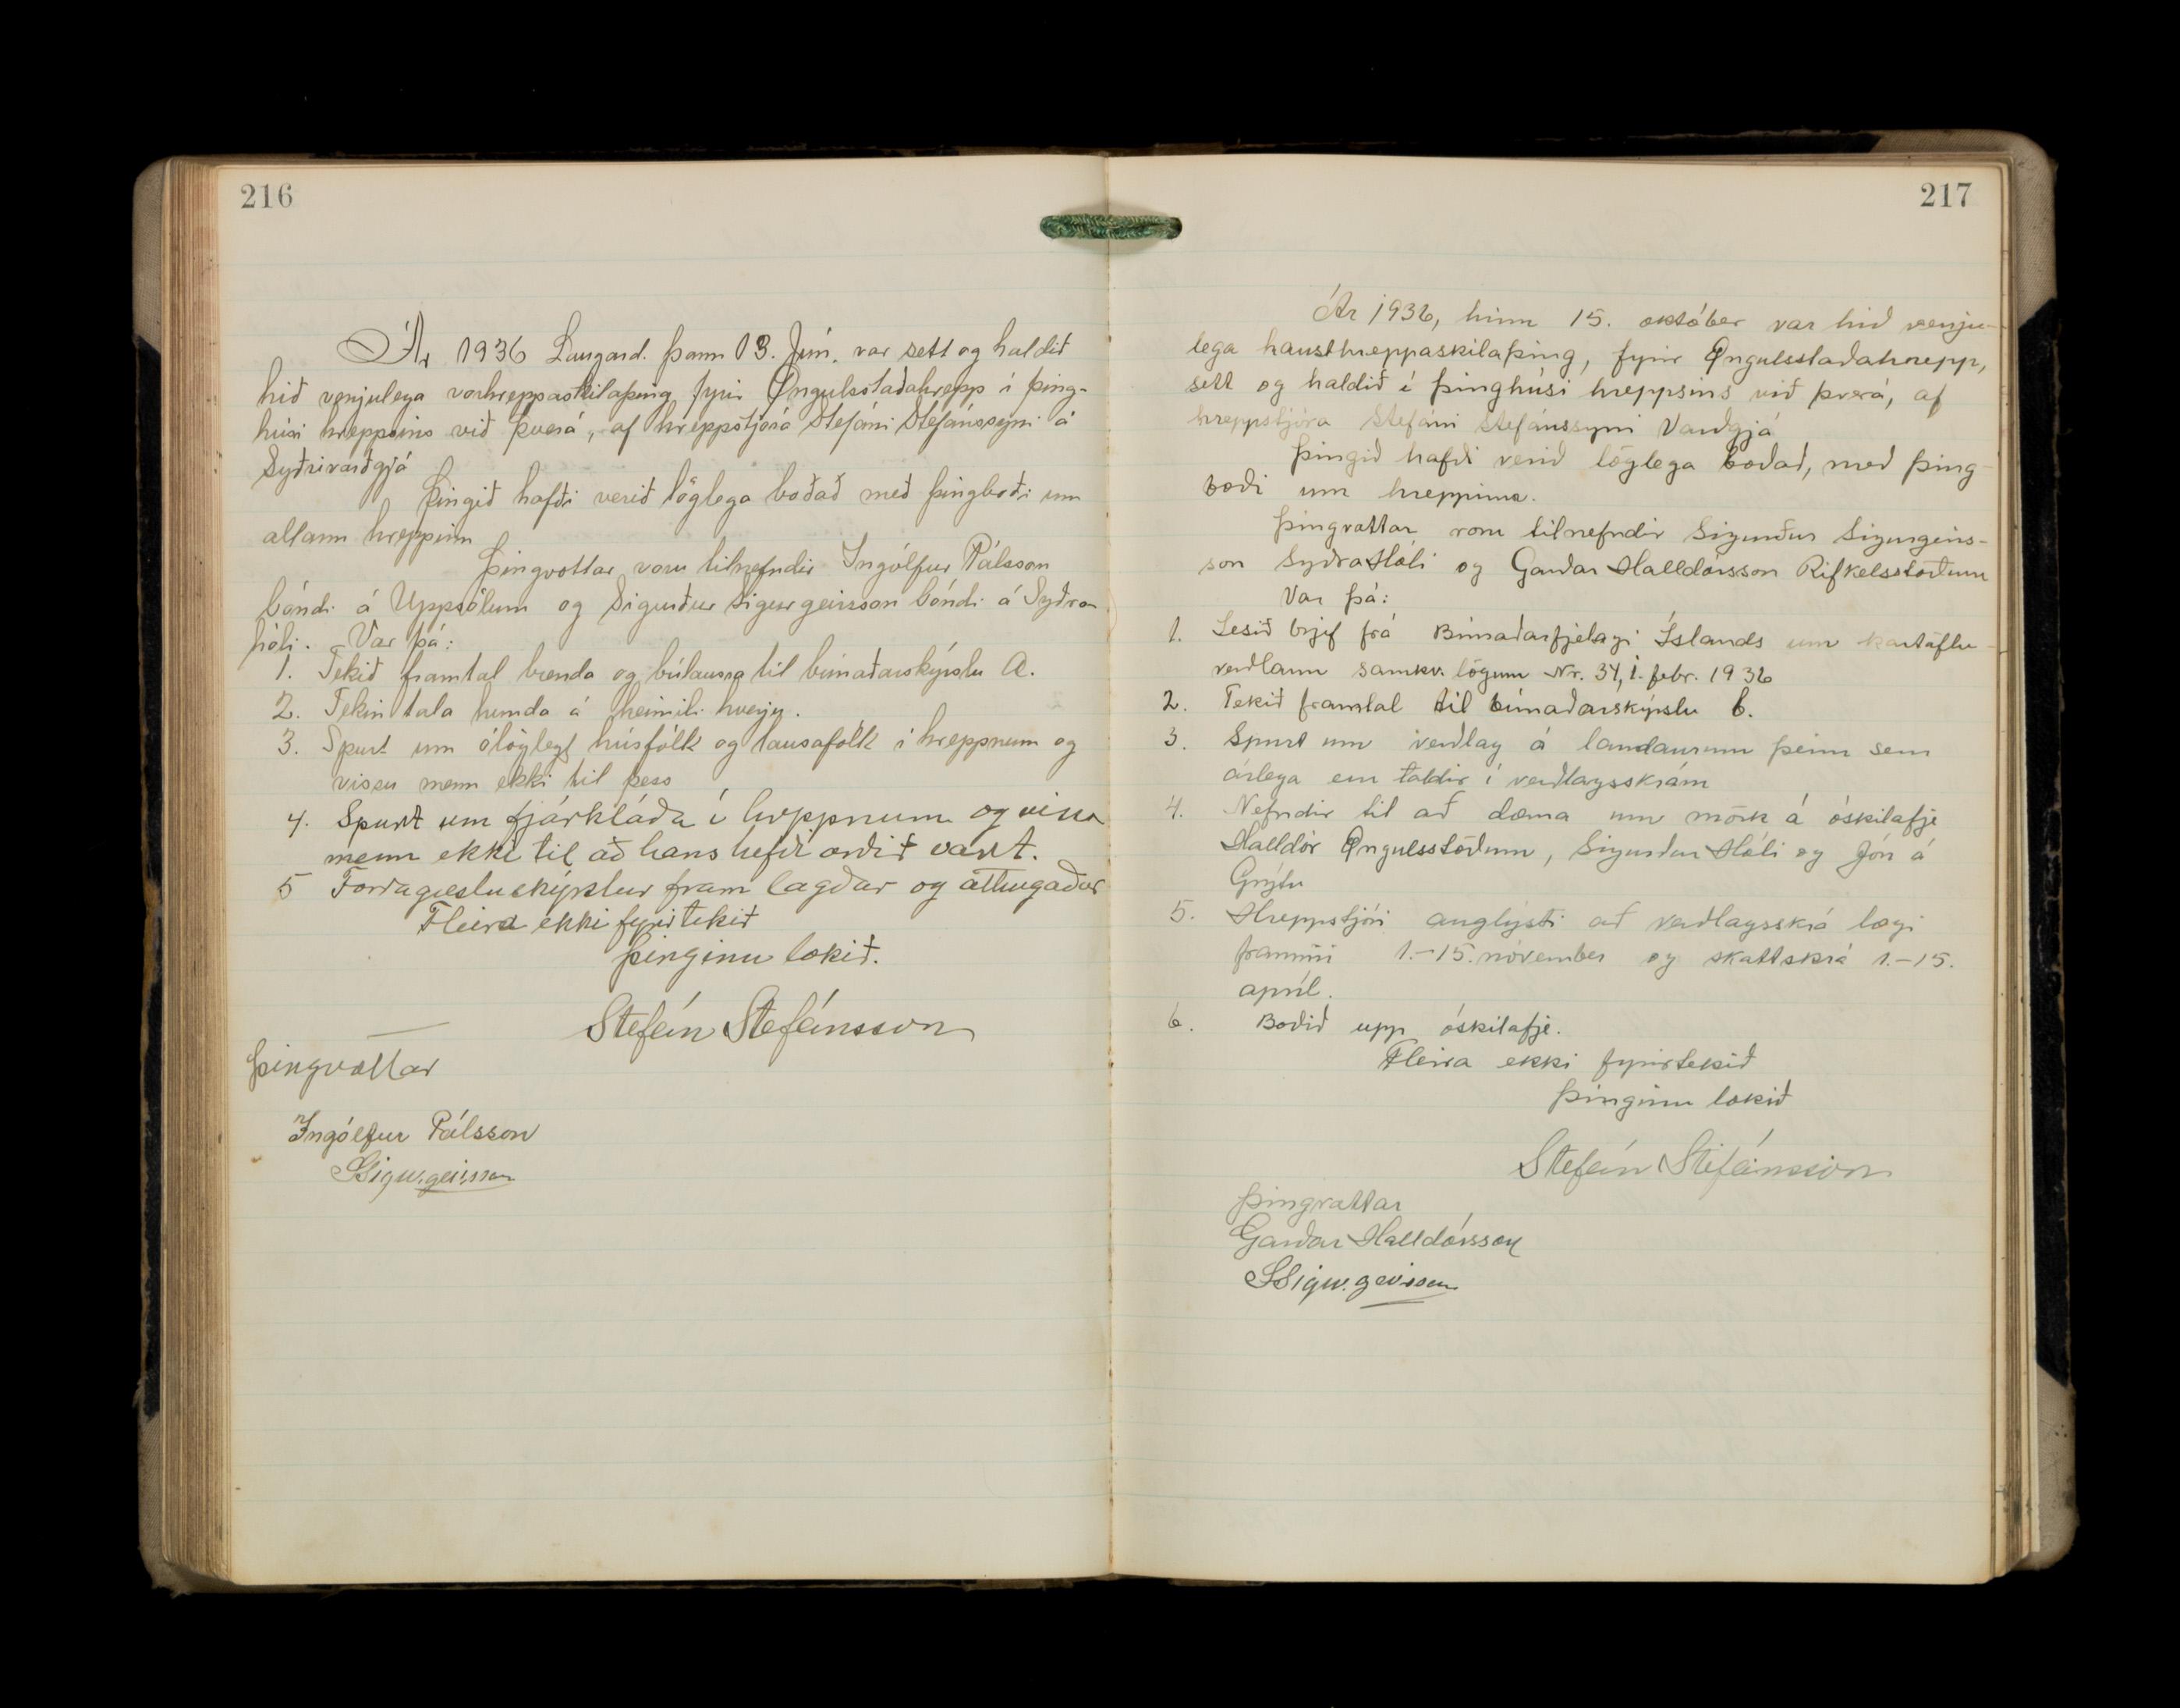 216
Ár 1936 Laugard. þann 13. Júní. var sett og haldið
hið venjulega vorhreppaskilaþing fyrir Öngulsstaðahrepp í þing-
húsi hreppsins við Þverá, af hreppstjóra Stefáni Stefánssyni á
Syðrivarðgjá
Þingið hafði verið löglega boðað með þingboði um
allann hreppinn
Þingvottar voru tilnefndir Ingólfur Pálsson
bóndi á Uppsölum og Sigurður Sigurgeirsson bóndi á Syðra
hóli. Var þá:
1. Tekið framtal bænda og búlausra til búnaðarskýrslu A.
2. Tekin tala hunda á heimili hverju.
3. Spurt um ólöglegt húsfólk og lausafólk í hreppnum og
vissu menn ekki til þess
4. Spurt um fjárkláða í hreppnum og vissu
menn ekki til að hans hefði orðið vart.
5 Forðagæsluskýrslur fram lagðar og athugaðar
Fleira ekki fyrirtekið
Þinginu lokið.
Stefán Stefánsson
Þingvottar
Ingólfur Pálsson
SSigurgeirsson
217
Ár 1936, hinn 15. október var hið venju-
lega hausthreppaskilaþing, fyrir Öngulsstaðahrepp,
sett og haldið í þinghúsi hreppsins við Þverá, af
hreppstjóra Stefáni Stefánssyni Varðgjá
Þingið hafði verið löglega boðað, með þing-
boði um hreppinn.
Þingvottar voru tilnefndir Sigurður Sigurgeirs-
son SyðraHóli og Garðar Halldórsson Rifkelsstöðum
Var þá:
1. Lesið brjef frá Búnaðarfjelagi Íslands um kartöflu-
verðlaun samkv. lögum Nr. 34, 1. febr. 1936
2. Tekið framtal til búnaðarskýrslu b.
3. Spurt um verðlag á landaurum þeim sem
árlega eru taldir í verðlagsskrám
4. Nefndir til að dæma um mörk á óskilafje
Halldór Öngulsstöðum, Sigurður Hóli og Jón á
Grýtu
5. Hreppstjóri auglýsti að verðlagsskrá lægi
frammi 1.-15. nóvember og skattskrá 1.-15.
apríl.
6. Boðið upp óskilafje.
Fleira ekki fyrirtekið
Þinginu lokið
Stefán Stefánsson
Þingvottar
Garðar Halldórsson
SSigurgeirsson